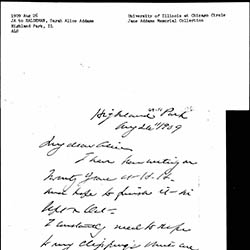 1909 Aug 26
JA to HALDEMAN, Sarah Alice Addams
Highland Park, IL
ALS
University of Illinois at Chicago Circle
Jane Addams Memorial Collection
Highland Park
Aug 26" 1909
My dear Alice
I have been writing on
Twenty Years at H.H.
and hope to finish it in
Sept & Oct -
I constantly need to refer
to my clippings which are